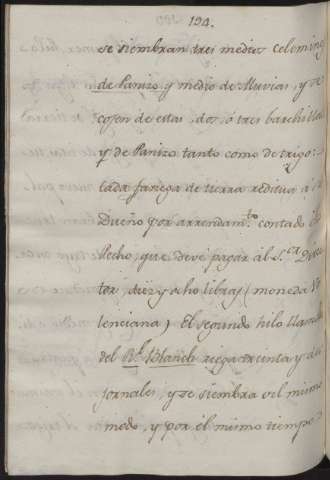 194.
se siembran tres medios celemines
de Panizo, y medio de Alluvias, y se
cojen de estas, dos, ó tres barchillas
y de Panizo tanto como de trigo:
cada fanega de tierra reditua á su
Dueño por arrendam.to contado el
Pecho, que deve pagar al S.or Direc
tor, diez y ocho libras (moneda Va
lenciana) El segundo hilo llamado
del R.l Blanch riega treinta y dos
jornales, y se siembra del mismo
modo, y por el mismo tiempo